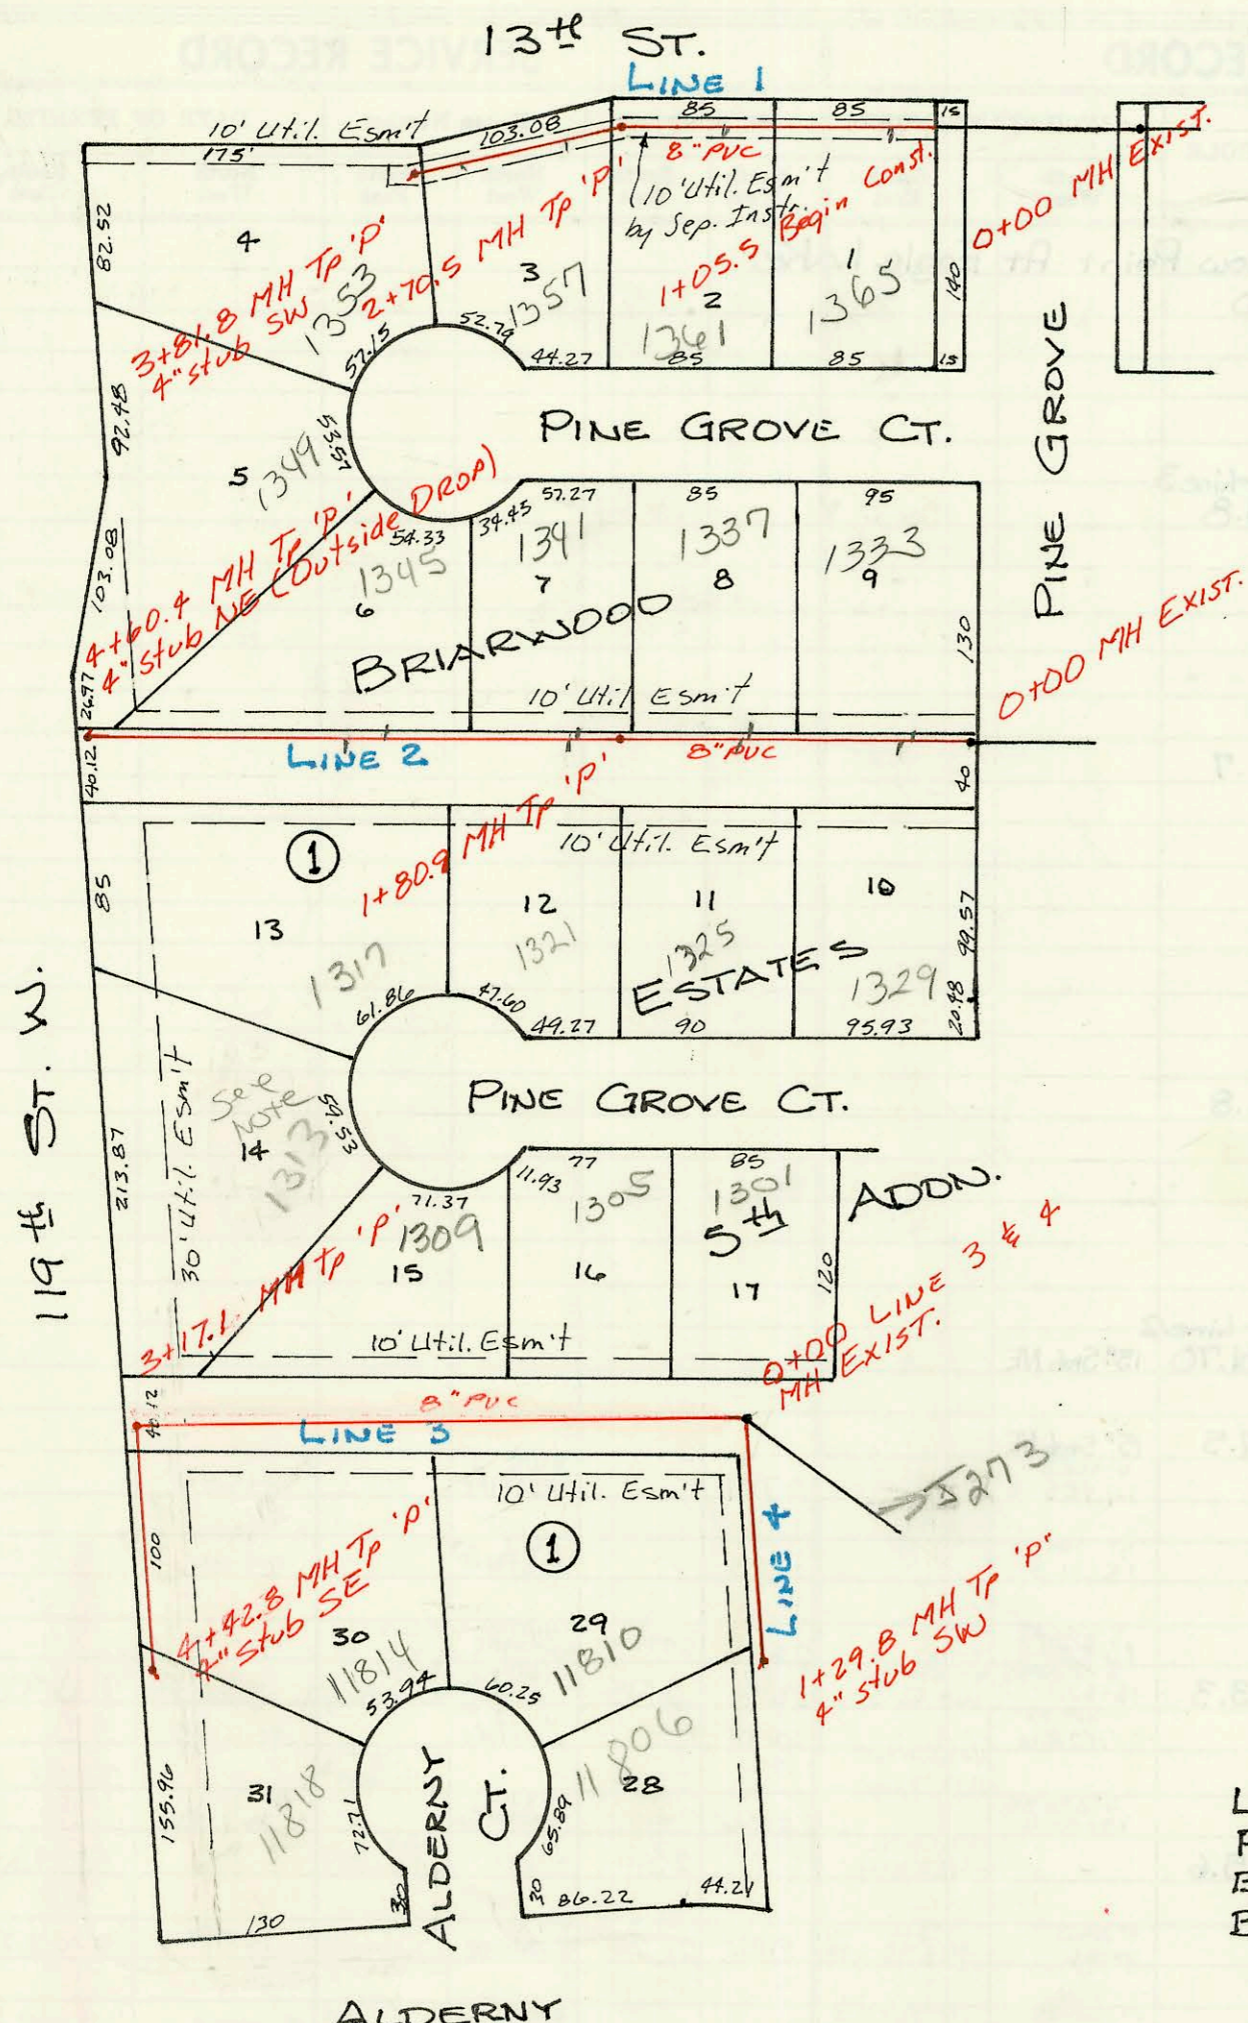 13th ST.
LINE 1
10' Util. Esm't
175'
103.08
85
85
15
8" PVC
10' Util. Esm't
by Sep. Instr.
1+05.5 Begin Const.
0+00 MH EXIST.
82.52
4
3+81.8 MH Tp 'P'
4" stub SW
1353
2+70.5 MH Tp 'P'
3
1357
2
1361
1
1365
140
57.15
52.79
44.27
85
85
15
PINE GROVE
92.48
53.57
PINE GROVE CT.
5
1349
4+60.4 MH Tp 'P'
4" stub NE (Outside DROP)
103.08
26.97
54.33
34.45
57.27
85
95
1345
6
1341
7
1337
8
1333
9
130
BRIARWOOD
10' Util Esm't
0+00 MH EXIST.
40.12
LINE 2
8" PVC
40
1+80.9 MH Tp 'P'
10' Util. Esm't
1
85
13
1317
12
1321
11
1325
10
1329
99.57
20.48
ESTATES
61.86
47.60
49.27
90
95.93
119th ST. W.
PINE GROVE CT.
30' Util. Esm't
See
Note
14
1313
59.53
213.87
71.37
11.93
77
85
1309
15
1305
16
1301
5th
17
120
ADDN.
3+17.1 MH Tp 'P'
10' Util. Esm't
0+00 LINE 3 & 4
MH EXIST.
40.12
8" PVC
LINE 3
10' Util. Esm't
1
5273
100
LINE 4
4+42.8 MH Tp 'P'
4" stub SE
30
11814
29
11810
1+29.8 MH Tp 'P'
4" stub SW
53.94
60.25
155.96
31
11818
72.71
28
11806
65.89
ALDERNY
CT.
130
30
30
86.22
44.21
ALDERNY